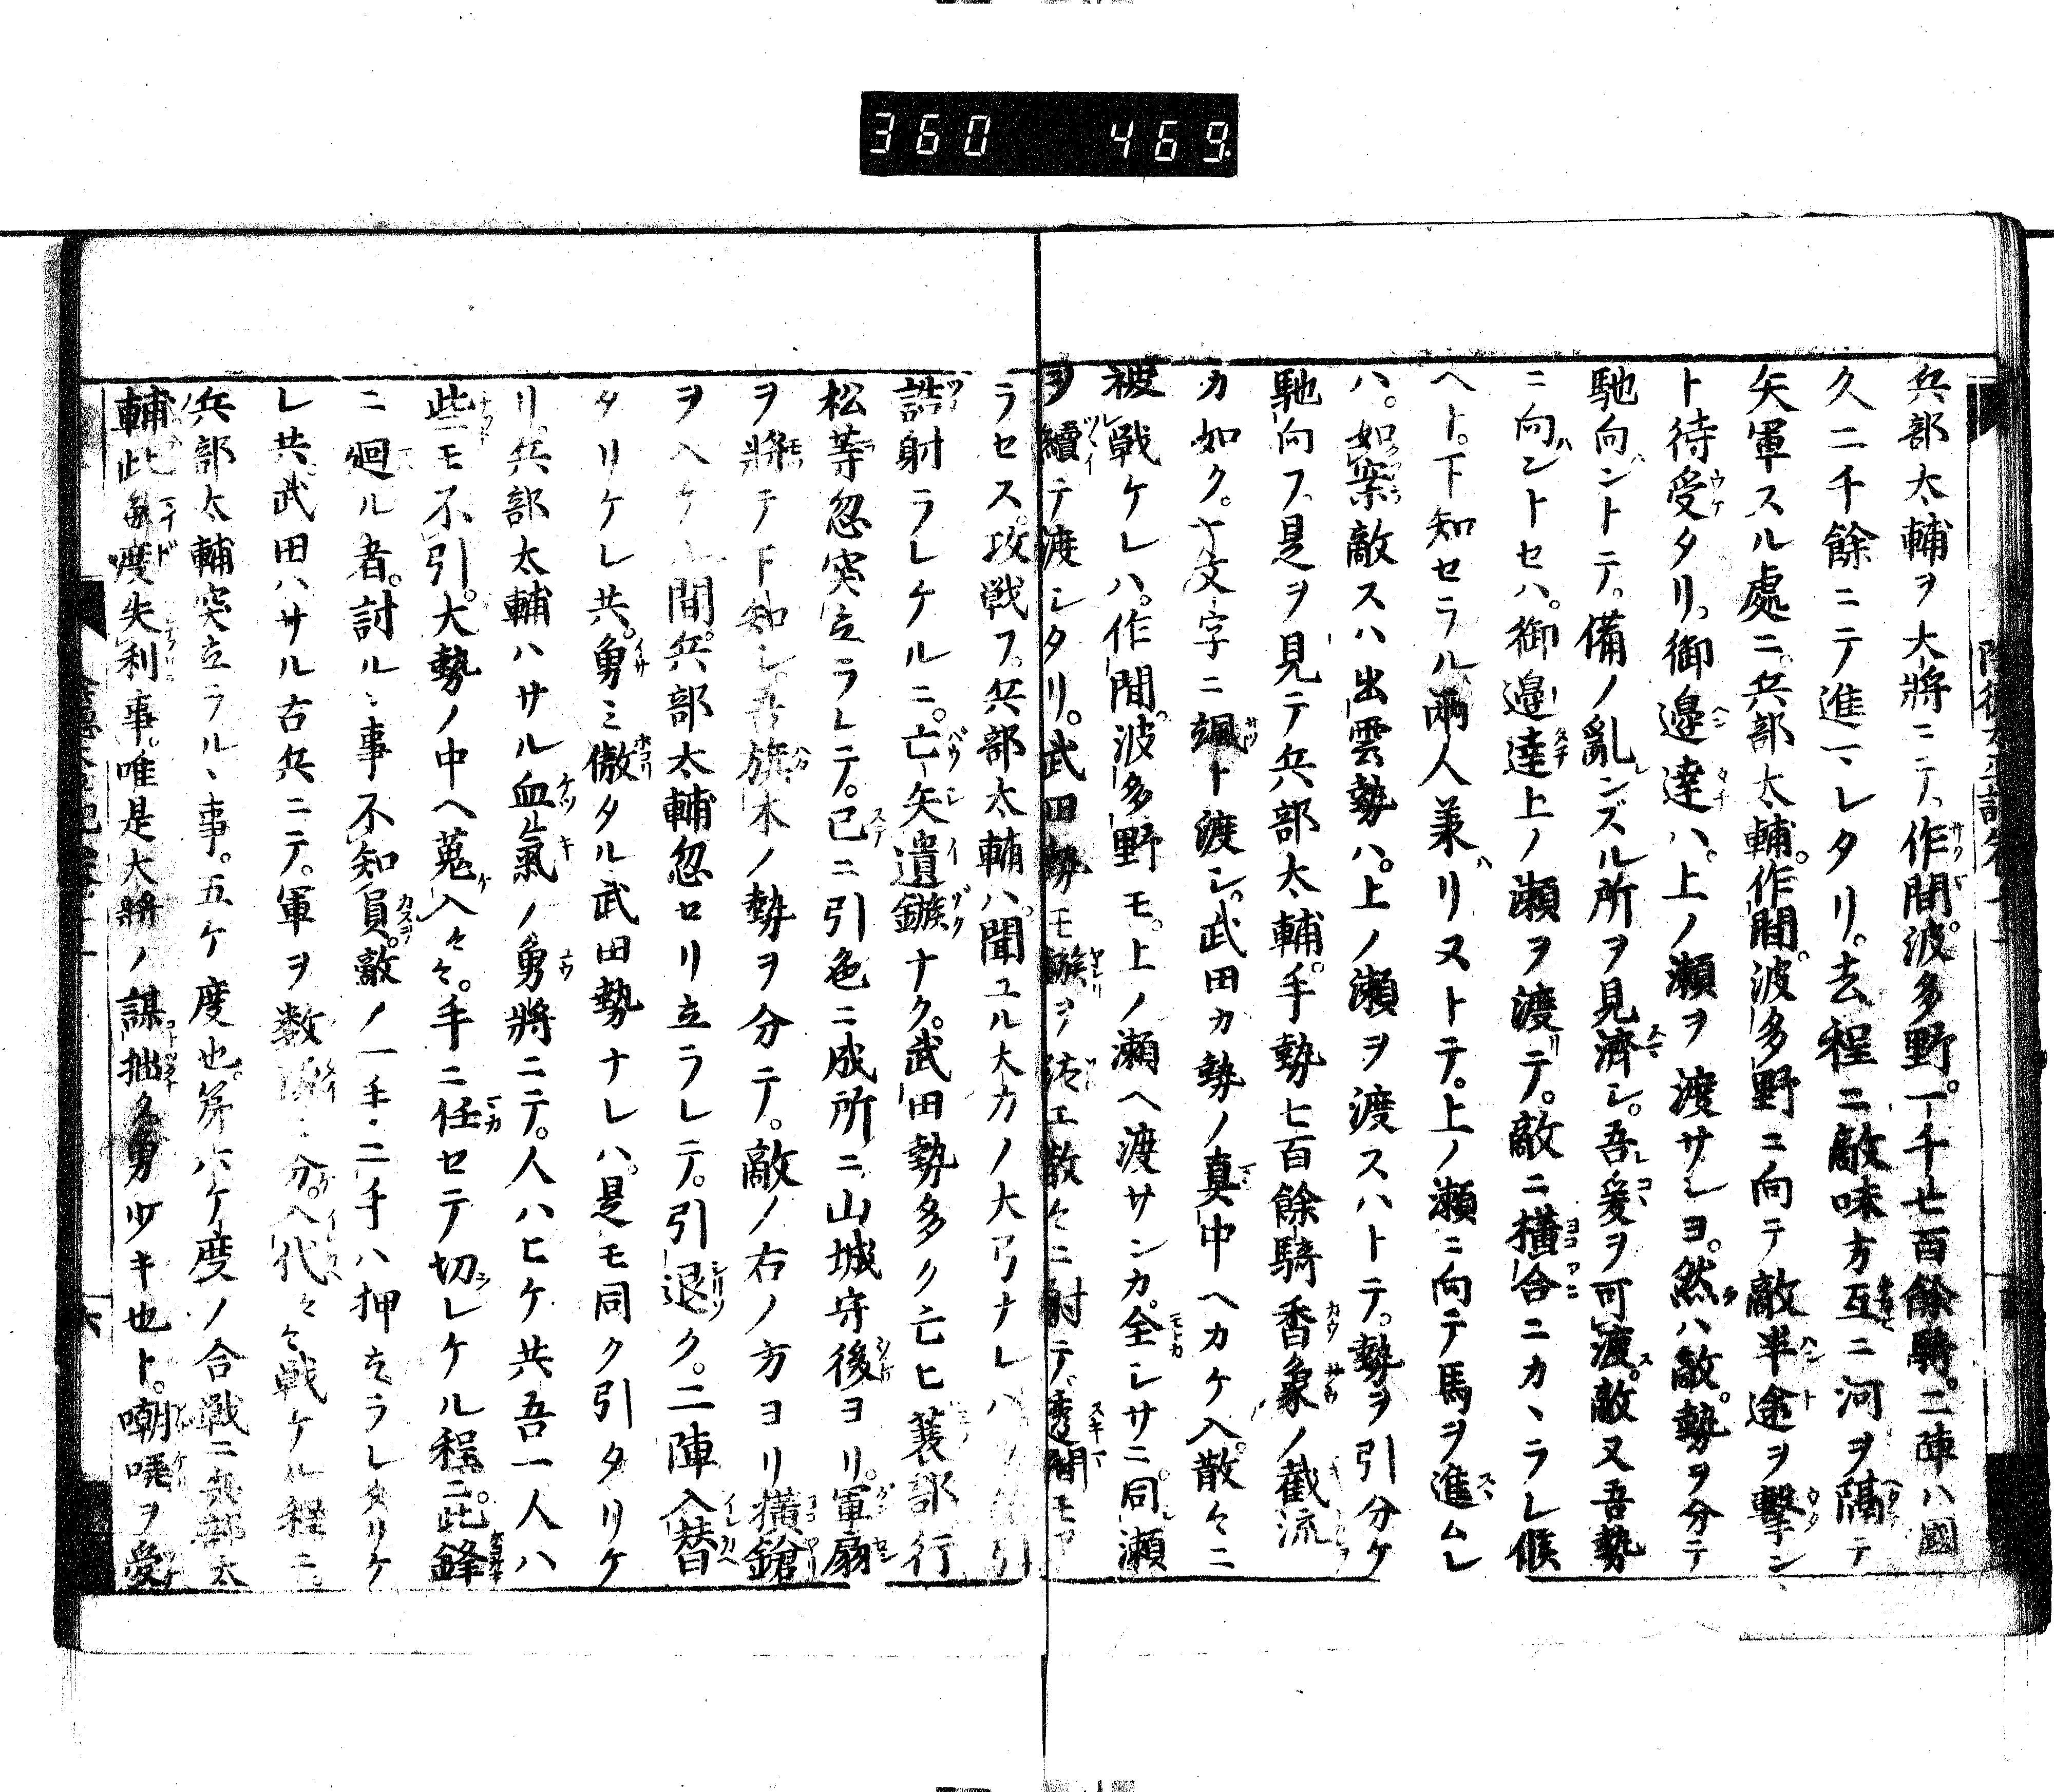 360 469.
兵部太輔ヲ大將ニテ、作間。波多野。一千七百餘騎。二陣ハ國
久二千餘ニテ進マレタリ。去程ニ敵味方互ニ河ヲ隔テ
矢軍スル處ニ。兵部太輔。作間。波多野ニ向テ敵半途ヲ擊ン、
ト待受タリ。御邉達ハ。上ノ瀬ヲ渡サレヨ。然ハ敵。勢ヲ分テ
馳向ントテ。備ノ亂ンズル所ヲ見濟シ。吾爰ヲ可渡。敵又吾勢
ニ向ントセハ。御邉達上ノ瀬ヲ渡テ。敵ニ橫合ニカヽラレ候
ヘト。下知セラル。兩人兼リヌトテ。上ノ瀬ニ向テ馬ヲ進ムレ
ハ。如案敵スハ出雲勢ハ。上ノ瀬ヲ渡スハトテ。勢ヲ引分ケ
馳向フ。是ヲ見テ兵部太輔。手勢七百餘騎香象ノ截流
カ如ク。十文字ニ颯ト渡シ。武田カ勢ノ真中ヘカケ入。散々ニ
被戰ケレハ。作間波多野モ。上ノ瀬ヘ渡サンカ。全レサニ。同瀬
ヲ續テ渡シタリ。武田勢モ鏃ヲ エ散々ニ射テ透間モア
ラセス。攻戰フ。兵部太輔ハ。聞ユル大力ノ大弓ナレハ 引
誥射ラレケルニ。亡矢遺鏃ナク。武田勢多ク亡ヒ 部行
松等忽突立ラレテ。已ニ引色ニ成所ニ。山城守後ヨリ。軍扇
ヲ將テ下知シ。吾旗本ノ勢ヲ分テ。敵ノ右ノ方ヨリ橫鎗
ヲ入ケル間。兵部太輔忽セリ立ラレテ。引退ク。二陣入替
タリケレ共。勇ミ傲タル武田勢ナレハ。是モ同ク引タリケ
リ。兵部太輔ハサル血氣ノ勇將ニテ。人ハヒケ共吾一人ハ
些モ不引。大勢ノ中ヘ蒐入々々。手ニ任セテ切ラレケル程ニ。此鋒
ニ廻ル者。討ルヽ事不知員。敵ノ一手二手ハ押立ラレタリケ
レ共。武田ハサル古兵ニテ。軍ヲ数 ニ分。入代々々戰ケル程ニ。
兵部太輔突立ラルヽ事。五ケ度也。第六ケ度ノ合戰ニ兵部太
輔此 度失利事。唯是大將ノ謀拙ク勇少キ也ト。嘲哢ヲ受
六